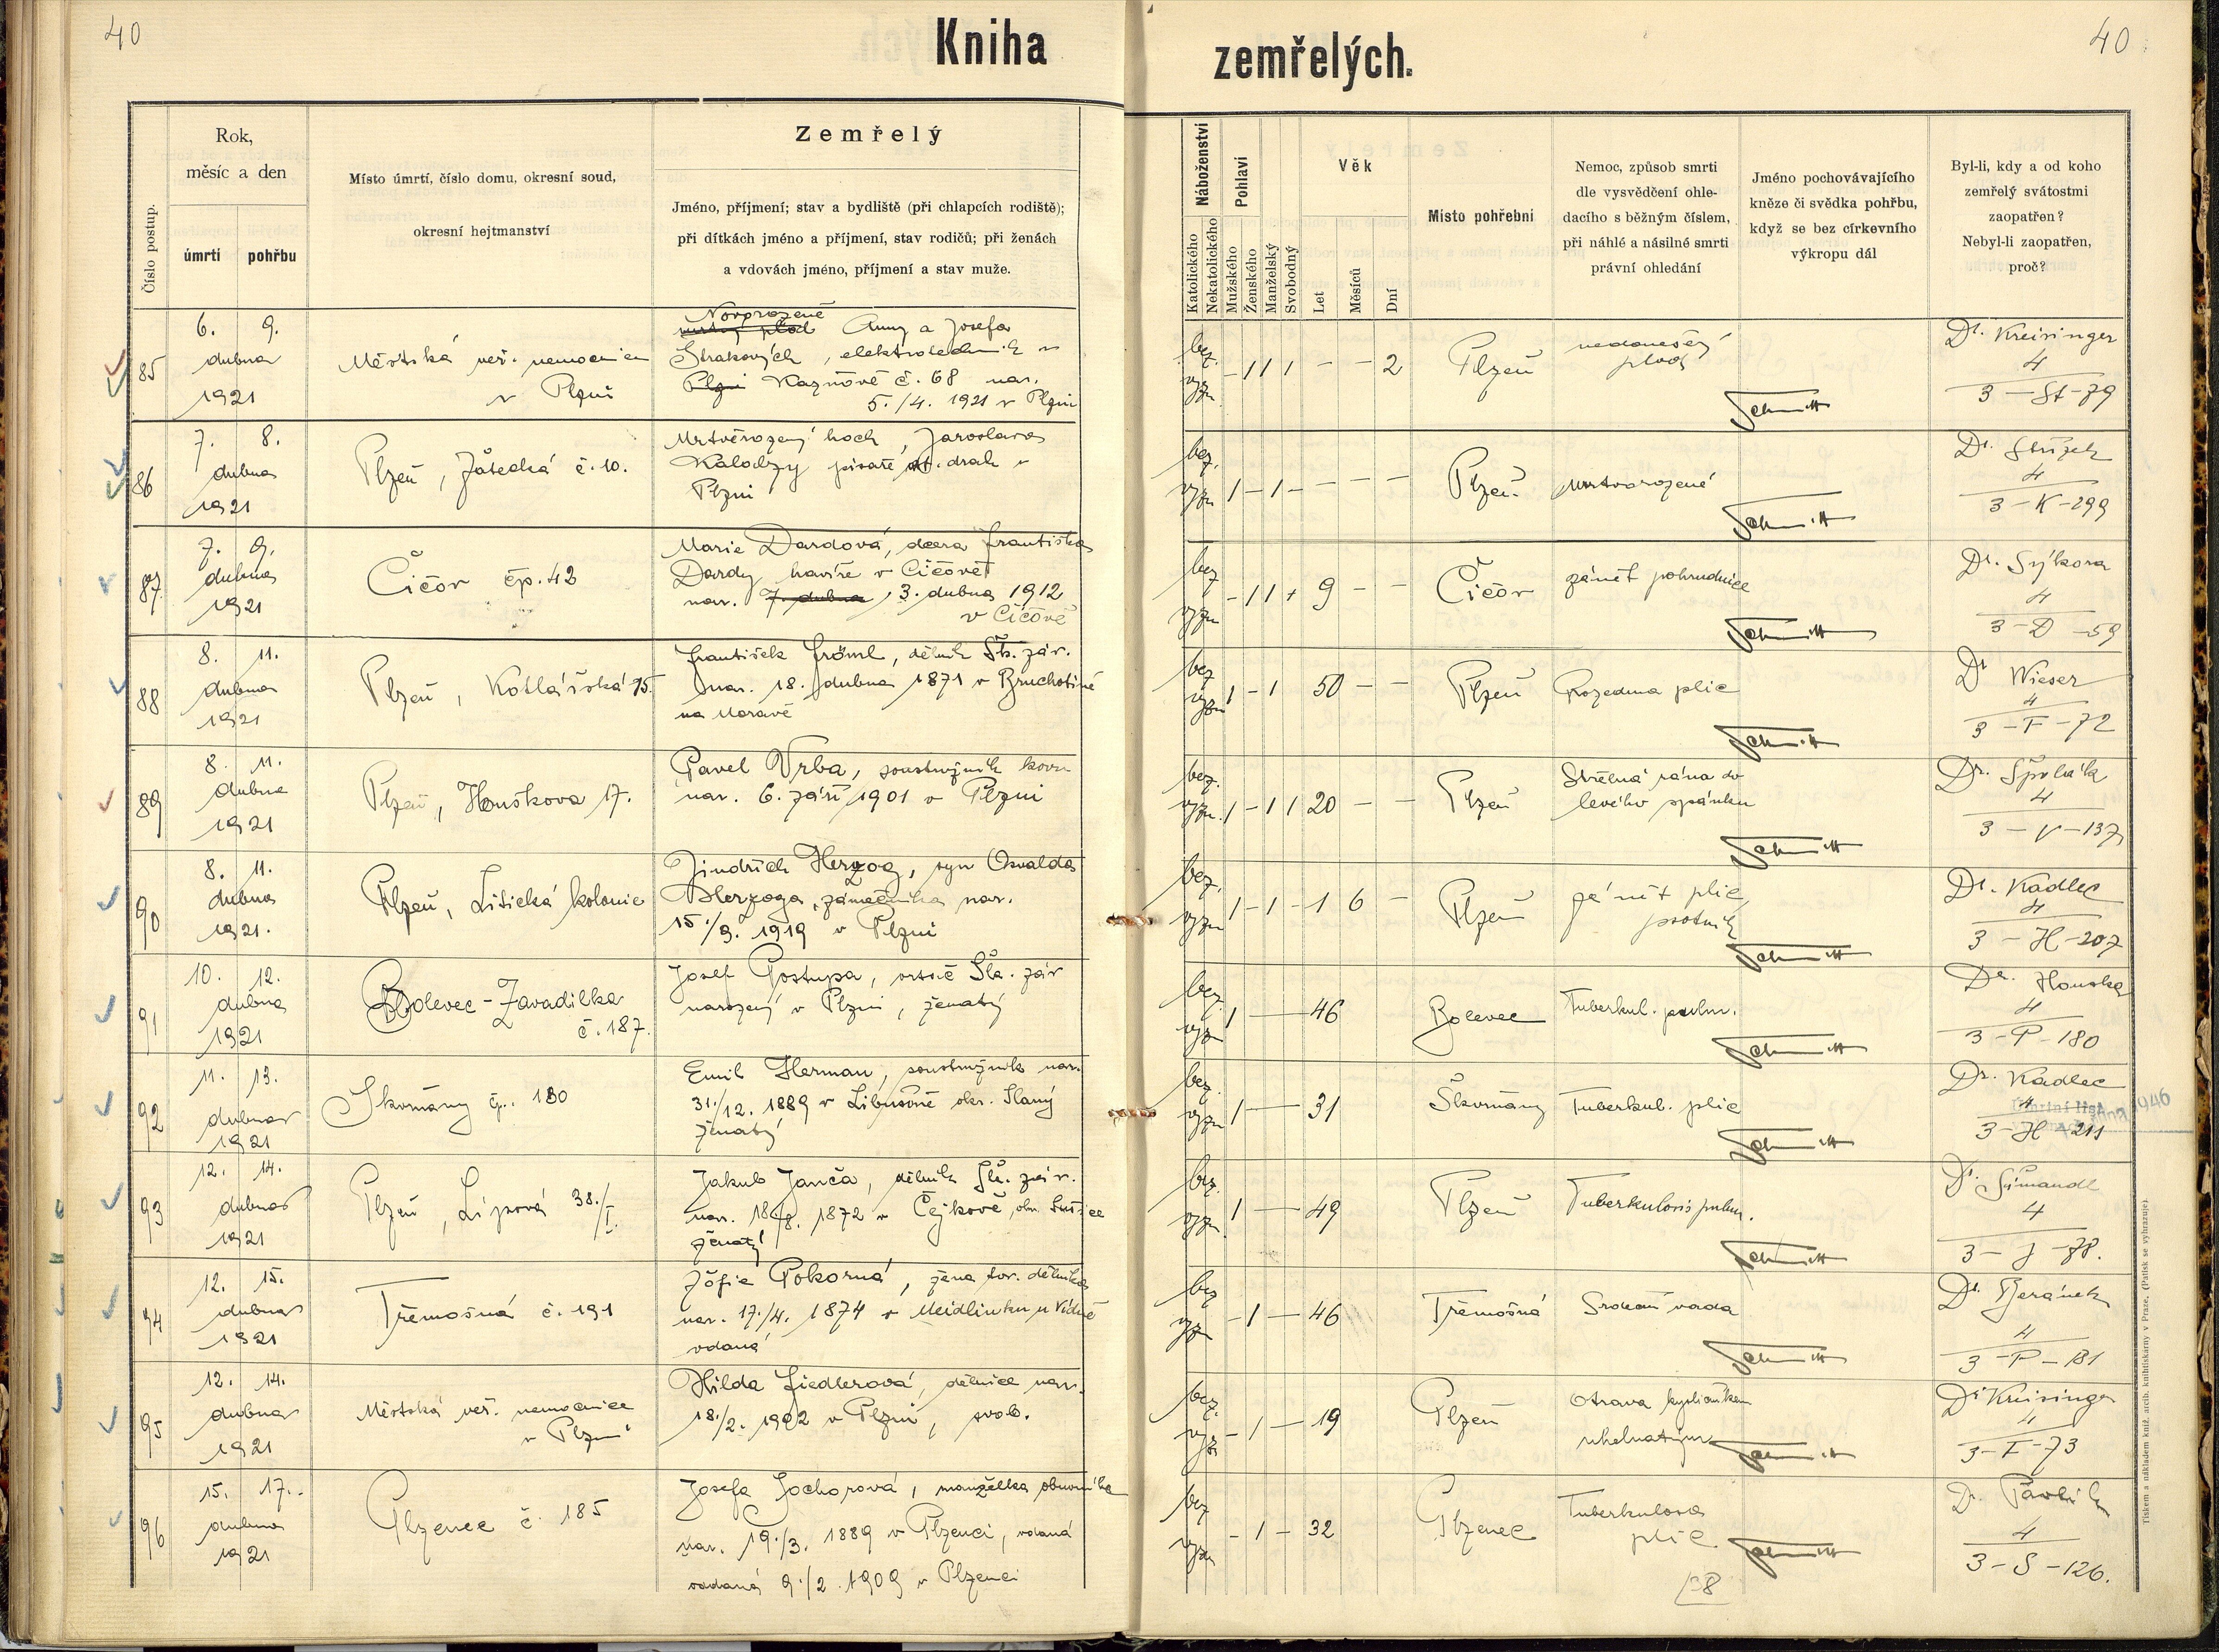 40
Kniha
zemřelých.
40
Číslo postup.
Rok,
měsíc a den
úmrtí
pohřbu
Místo úmrtí, číslo domu, okresní soud,
okresní hejtmanství
Zemřelý
Jméno, příjmení; stav a bydliště (při chlapcích rodiště);
při dítkách jméno a příjmení, stav rodičů; při ženách
a vdovách jméno, příjmení a stav muže.
Náboženství
Katolického
Nekatolického
Pohlaví
Mužského
Ženského
Manželský
Svobodný
Věk
Let
Měsíců
Dní
Místo pohřební
Nemoc, způsob smrti
dle vysvědčení ohle-
dacího s běžným číslem,
při náhlé a násilné smrti
právní ohledání
Jméno pochovávajícího
kněze či svědka pohřbu,
když se bez církevního
výkropu dál
Byl-li, kdy a od koho
zemřelý svátostmi
zaopatřen?
Nebyl-li zaopatřen,
proč?
85
6. 9.
dubna
1921
Městská veř. nemocnice
v Plzni
Novorozené
mrtvý plod Anny a Josefa
Strakových, elektrotechnik v
Plzni Kaznově č. 68 nar.
5./4. 1921 v Plzni
bez
vyzn
- 1 1 1 - - 2
Plzeň
nedonešený
plod
Schmitt
Dr. Kreisinger
4
3 - St - 79
86
7. 8.
dubna
1921
Plzeň, Žatecká č. 10.
Mrtvěrozený hoch, Jaroslava
Kalodzy písaře st. drah v
Plzni
bez.
vyzn
1 - 1 - - - -
Plzeň
mrtvorozené
Schmitt
Dr. Střízek
4
3 - K - 299
87
7. 9.
dubna
1921
Čičov čp. 42
Marie Dardová, dcera Františka
Dardy havíře v Čičově
nar. 7. dubna, 3. dubna 1912
v Čičově
bez
vyzn
- 1 1 + 9 - -
Čičov
zánět pohrudnice
Schmitt
Dr. Sýkora
4
3 - D - 59
88
8. 11.
dubna
1921
Plzeň, Kotlářská 15.
František Fröml, dělník Šk. záv.
nar. 18. dubna 1871 v Bruchotíně
na Moravě
bez
vyzn
1 - 1 50 - -
Plzeň
Rozedma plic
Schmitt
Dr Wieser
4
3 - F - 72
89
8. 11.
dubna
1921
Plzeň, Houškova 17.
Pavel Vrba, soustružník kovu
nar. 6. září 1901 v Plzni
bez.
vyzn.
1 - 1 1 20 - -
Plzeň
Střelná rána do
levého spánku
Schmitt
Dr. Špulák
4
3 - V - 137
90
8. 11.
dubna
1921.
Plzeň, Litická kolonie
Jindřich Herzog, syn Osvalda
Herzoga, zámečníka nar.
15./9. 1919 v Plzni
bez.
vyzn
1 - 1 - 1 6 -
Plzeň
zánět plic,
psotník
Schmitt
Dr. Kadlec
4
3 - H - 207
91
10. 12.
dubna
1921
Bolevec - Zavadilka
č. 187.
Josef Postupa, vrtač Šk. záv
narozený v Plzni, ženatý
bez
vyzn
1 - 46
Bolevec
Tuberkul. pulm.
Schmitt
Dr. Houska
4
3 - P - 180
92
11. 13.
dubna
1921
Skvrňany č. 180
Emil Herman, soustružník nar.
31./12. 1889 v Libušíně okr. Slaný
ženatý
bez
vyzn
1 - 31
Škvrňany
Tuberkul. plic
Schmitt
Dr. Kadlec
4
Úmrtní list
1946
3 - H - 211
93
12. 14.
dubna
1921
Plzeň, Lipová 38./I.
Jakub Janča, dělník Šk. záv.
nar. 18/8. 1872 v Čejkově, okr. Sušice
ženatý
bez
vyzn
1 - 49
Plzeň
Tuberkulosis pulm.
Schmitt
Dr. Šimandl
4
3 - J - 78.
94
12. 15.
dubna
1921
Třemošná č. 191
Žofie Pokorná, žena tov. dělníka
nar. 17./4. 1874 v Meidlinku u Vídně
vdaná
bez
vyzn
- 1 - 46
Třemošná
Srdeční vada
Schmitt
Dr. Beránek
4
3 - P - 181
95
12. 14.
dubna
1921
Městská veř. nemocnice
v Plzni
Hilda Fiedlerová, dělnice nar.
18./2. 1902 v Plzni, svob.
bez.
vyzn
- 1 - 19
Plzeň
Otrava kysličníkem
uhelnatým
Schmitt
Dr Kreisinger
4
3 - F - 73
96
15. 17.
dubna
1921
Plzenec č. 185
Josefa Sochorová, manželka obuvníka
nar. 19./3. 1889 v Plzenci, vdaná
oddaná 9./2. 1909 v Plzenci
bez
vyzn
- 1 - 32
Plzenec
Tuberkulosa
plic.
Schmitt
Dr. Pavlík
4
3 - S - 126.
28
Tiskem a nákladem kniž. arcib. knihtiskárny v Praze. (Patisk se vyhrazuje).